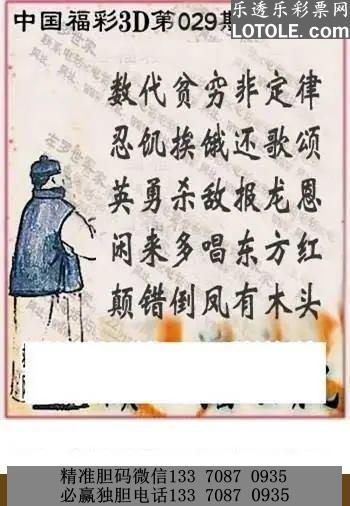 中国福彩3D第029期
乐透乐彩票网
LOTOLE.COM
数代贫穷非定律
忍饥挨饿还歌颂
英勇杀敌报龙恩
闲来多唱东方红
颠错倒凤有木头
精准胆码微信133 7087 0935
必赢独胆电话133 7087 0935